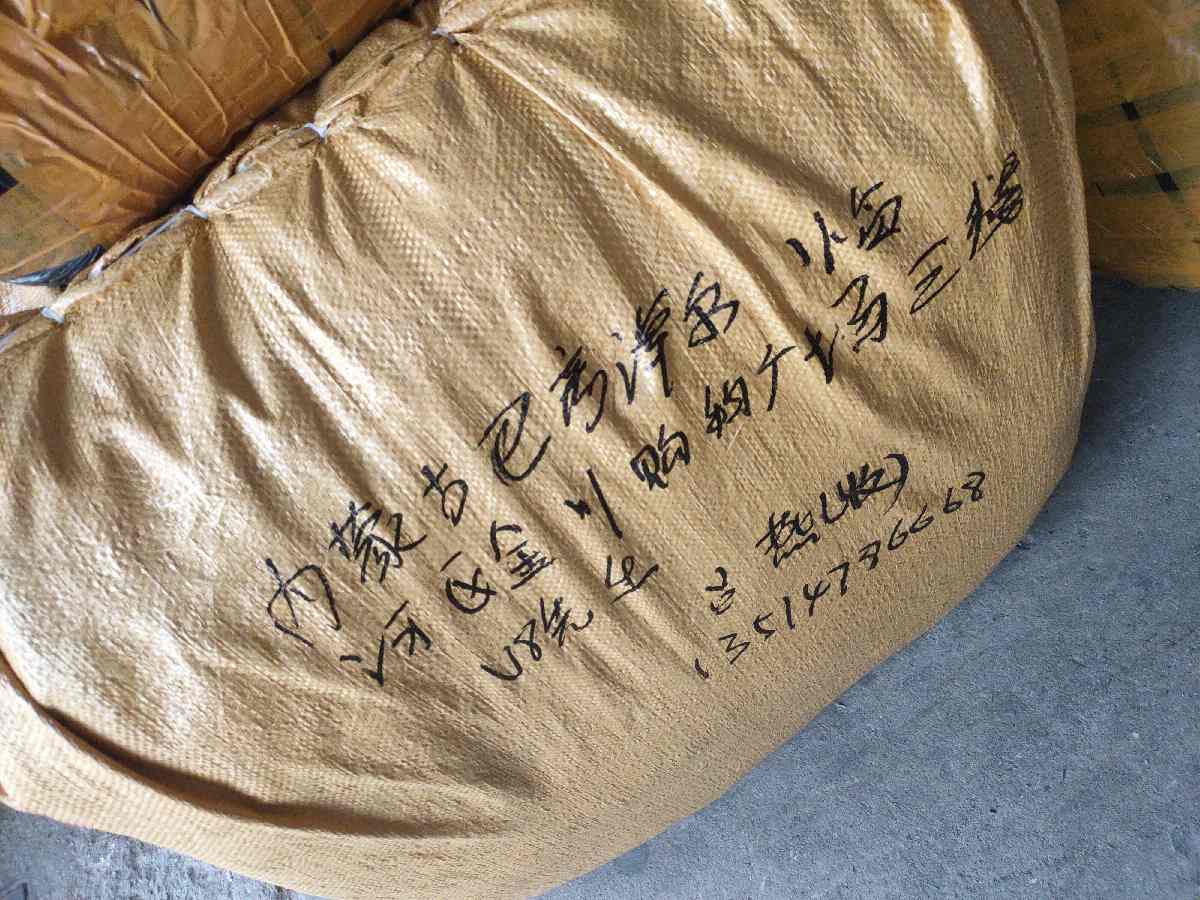 内蒙古巴彦淖尔 临
河区金川购物广场三楼
V8先生 吕 (收)
13514736668